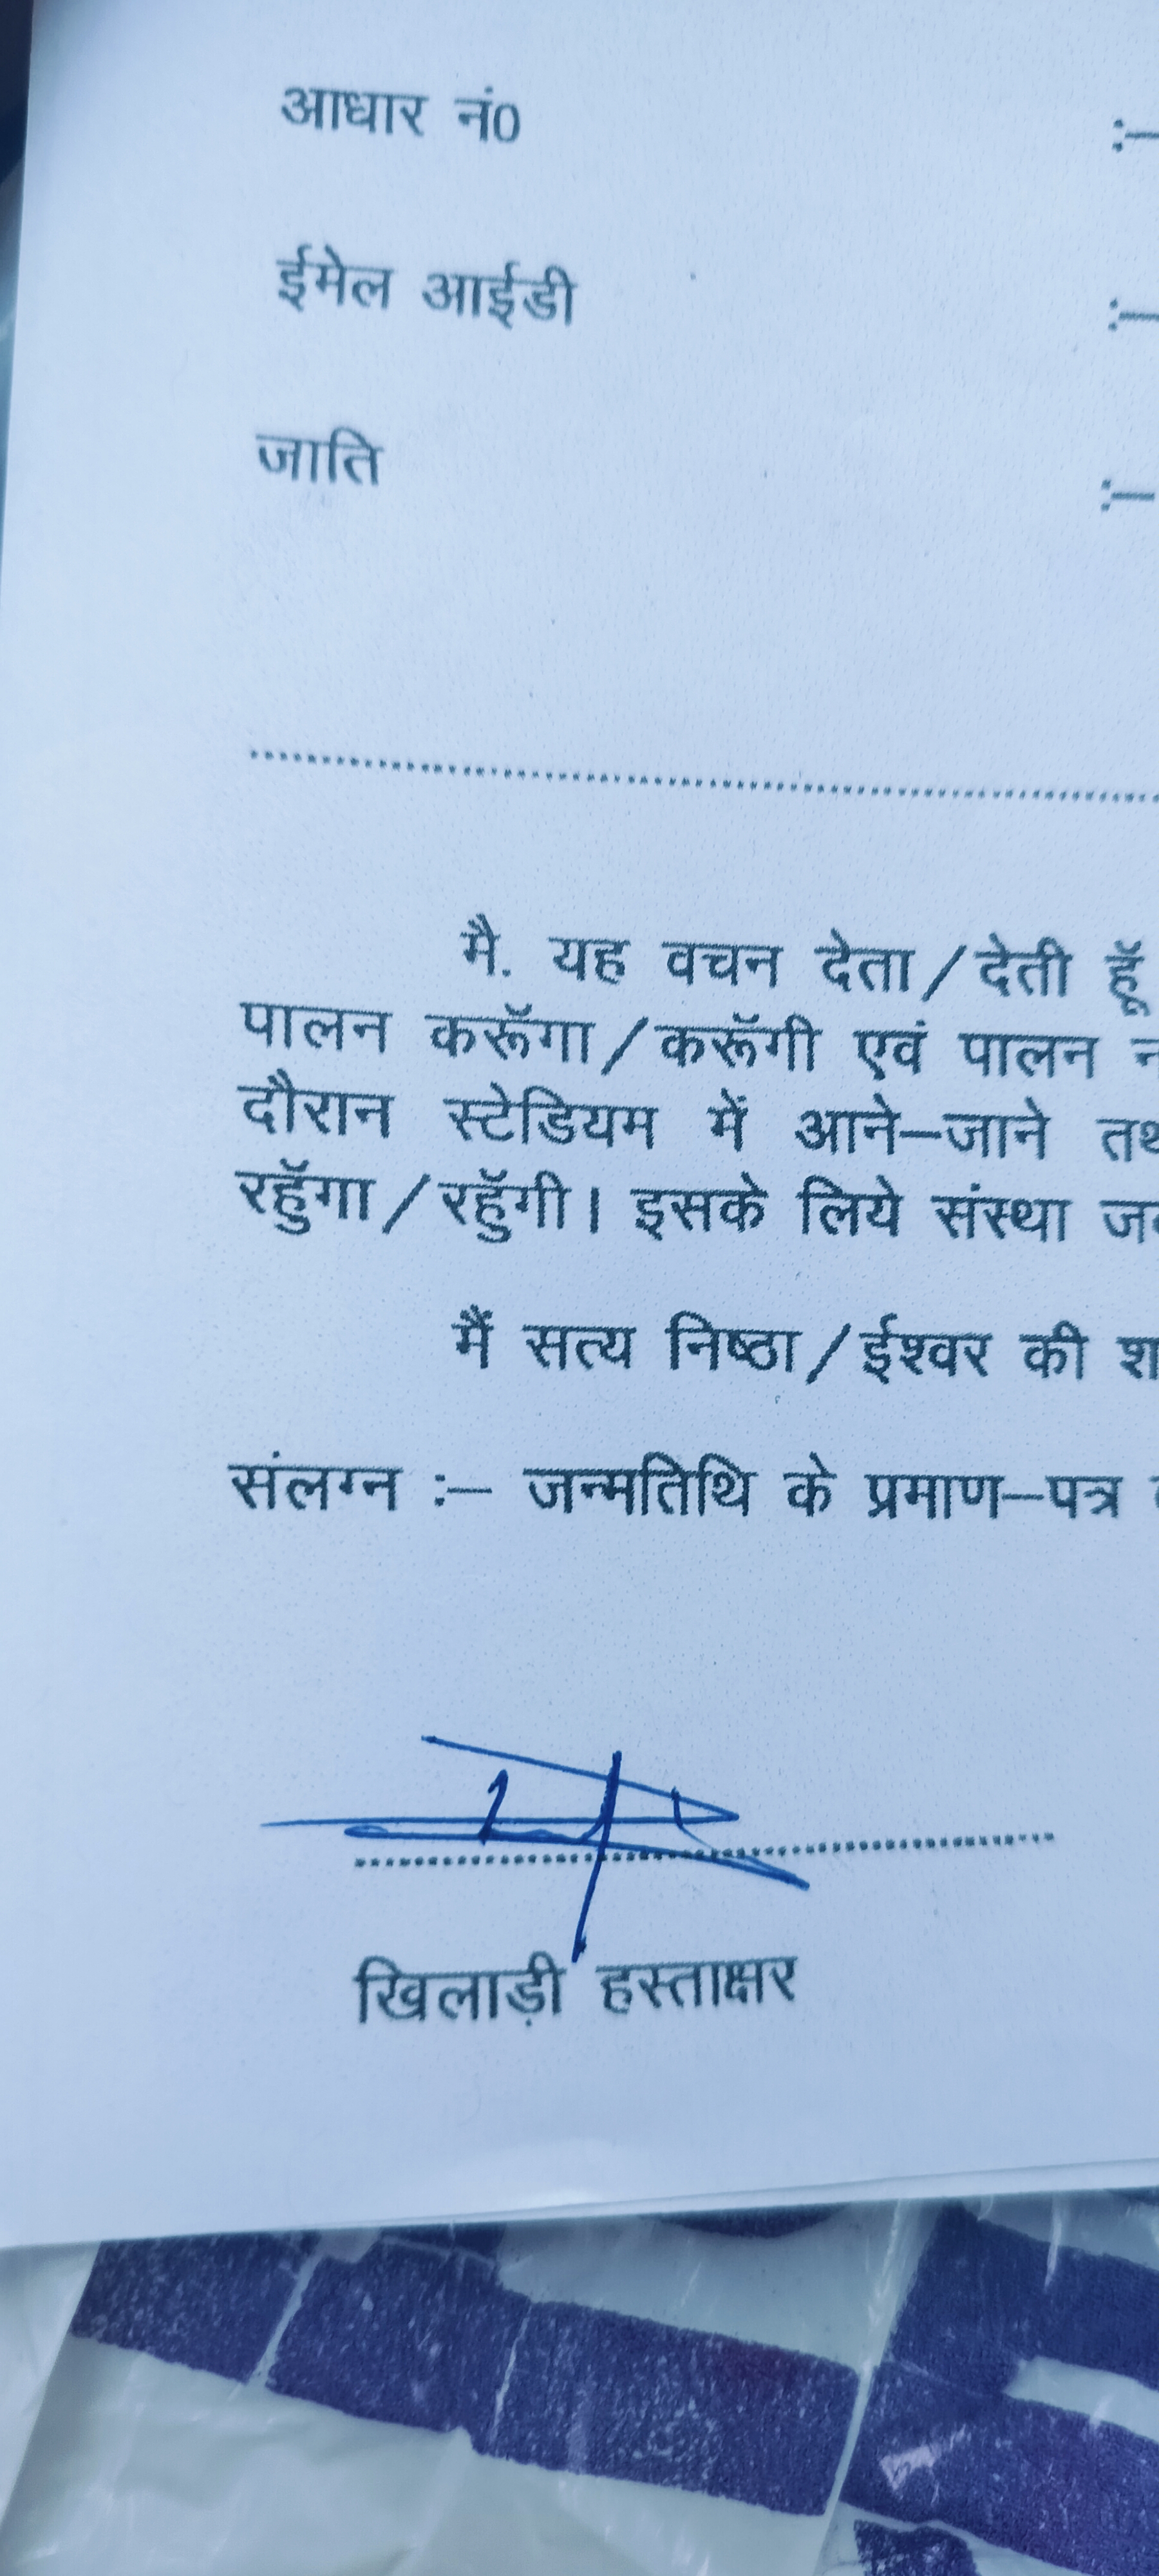 आधार नं0 :–
ईमेल आईडी :–
जाति :–
मै. यह वचन देता/देती हूॅ
पालन करूॅगा/करूॅगी एवं पालन
दौरान स्टेडियम में आने–जाने
रहुॅगा/रहुॅगी। इसके लिये संस्था
मैं सत्य निष्ठा/ईश्वर की
संलग्न :– जन्मतिथि के प्रमाण–पत्र
खिलाड़ी हस्ताक्षर